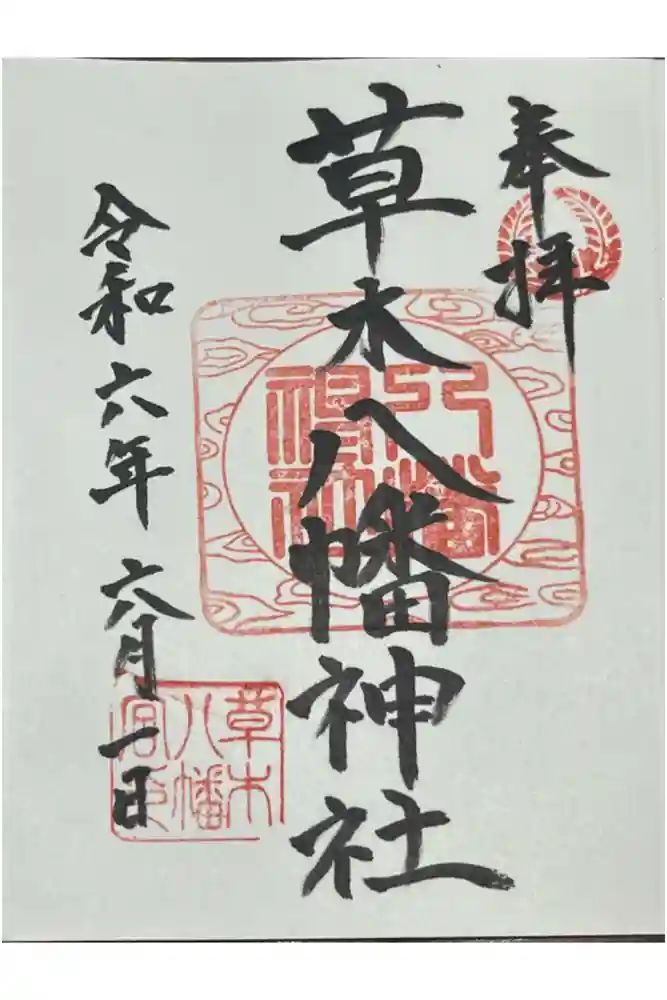 奉拝
草木八幡神社
令和六年 六月一日
草木
八幡
宮司